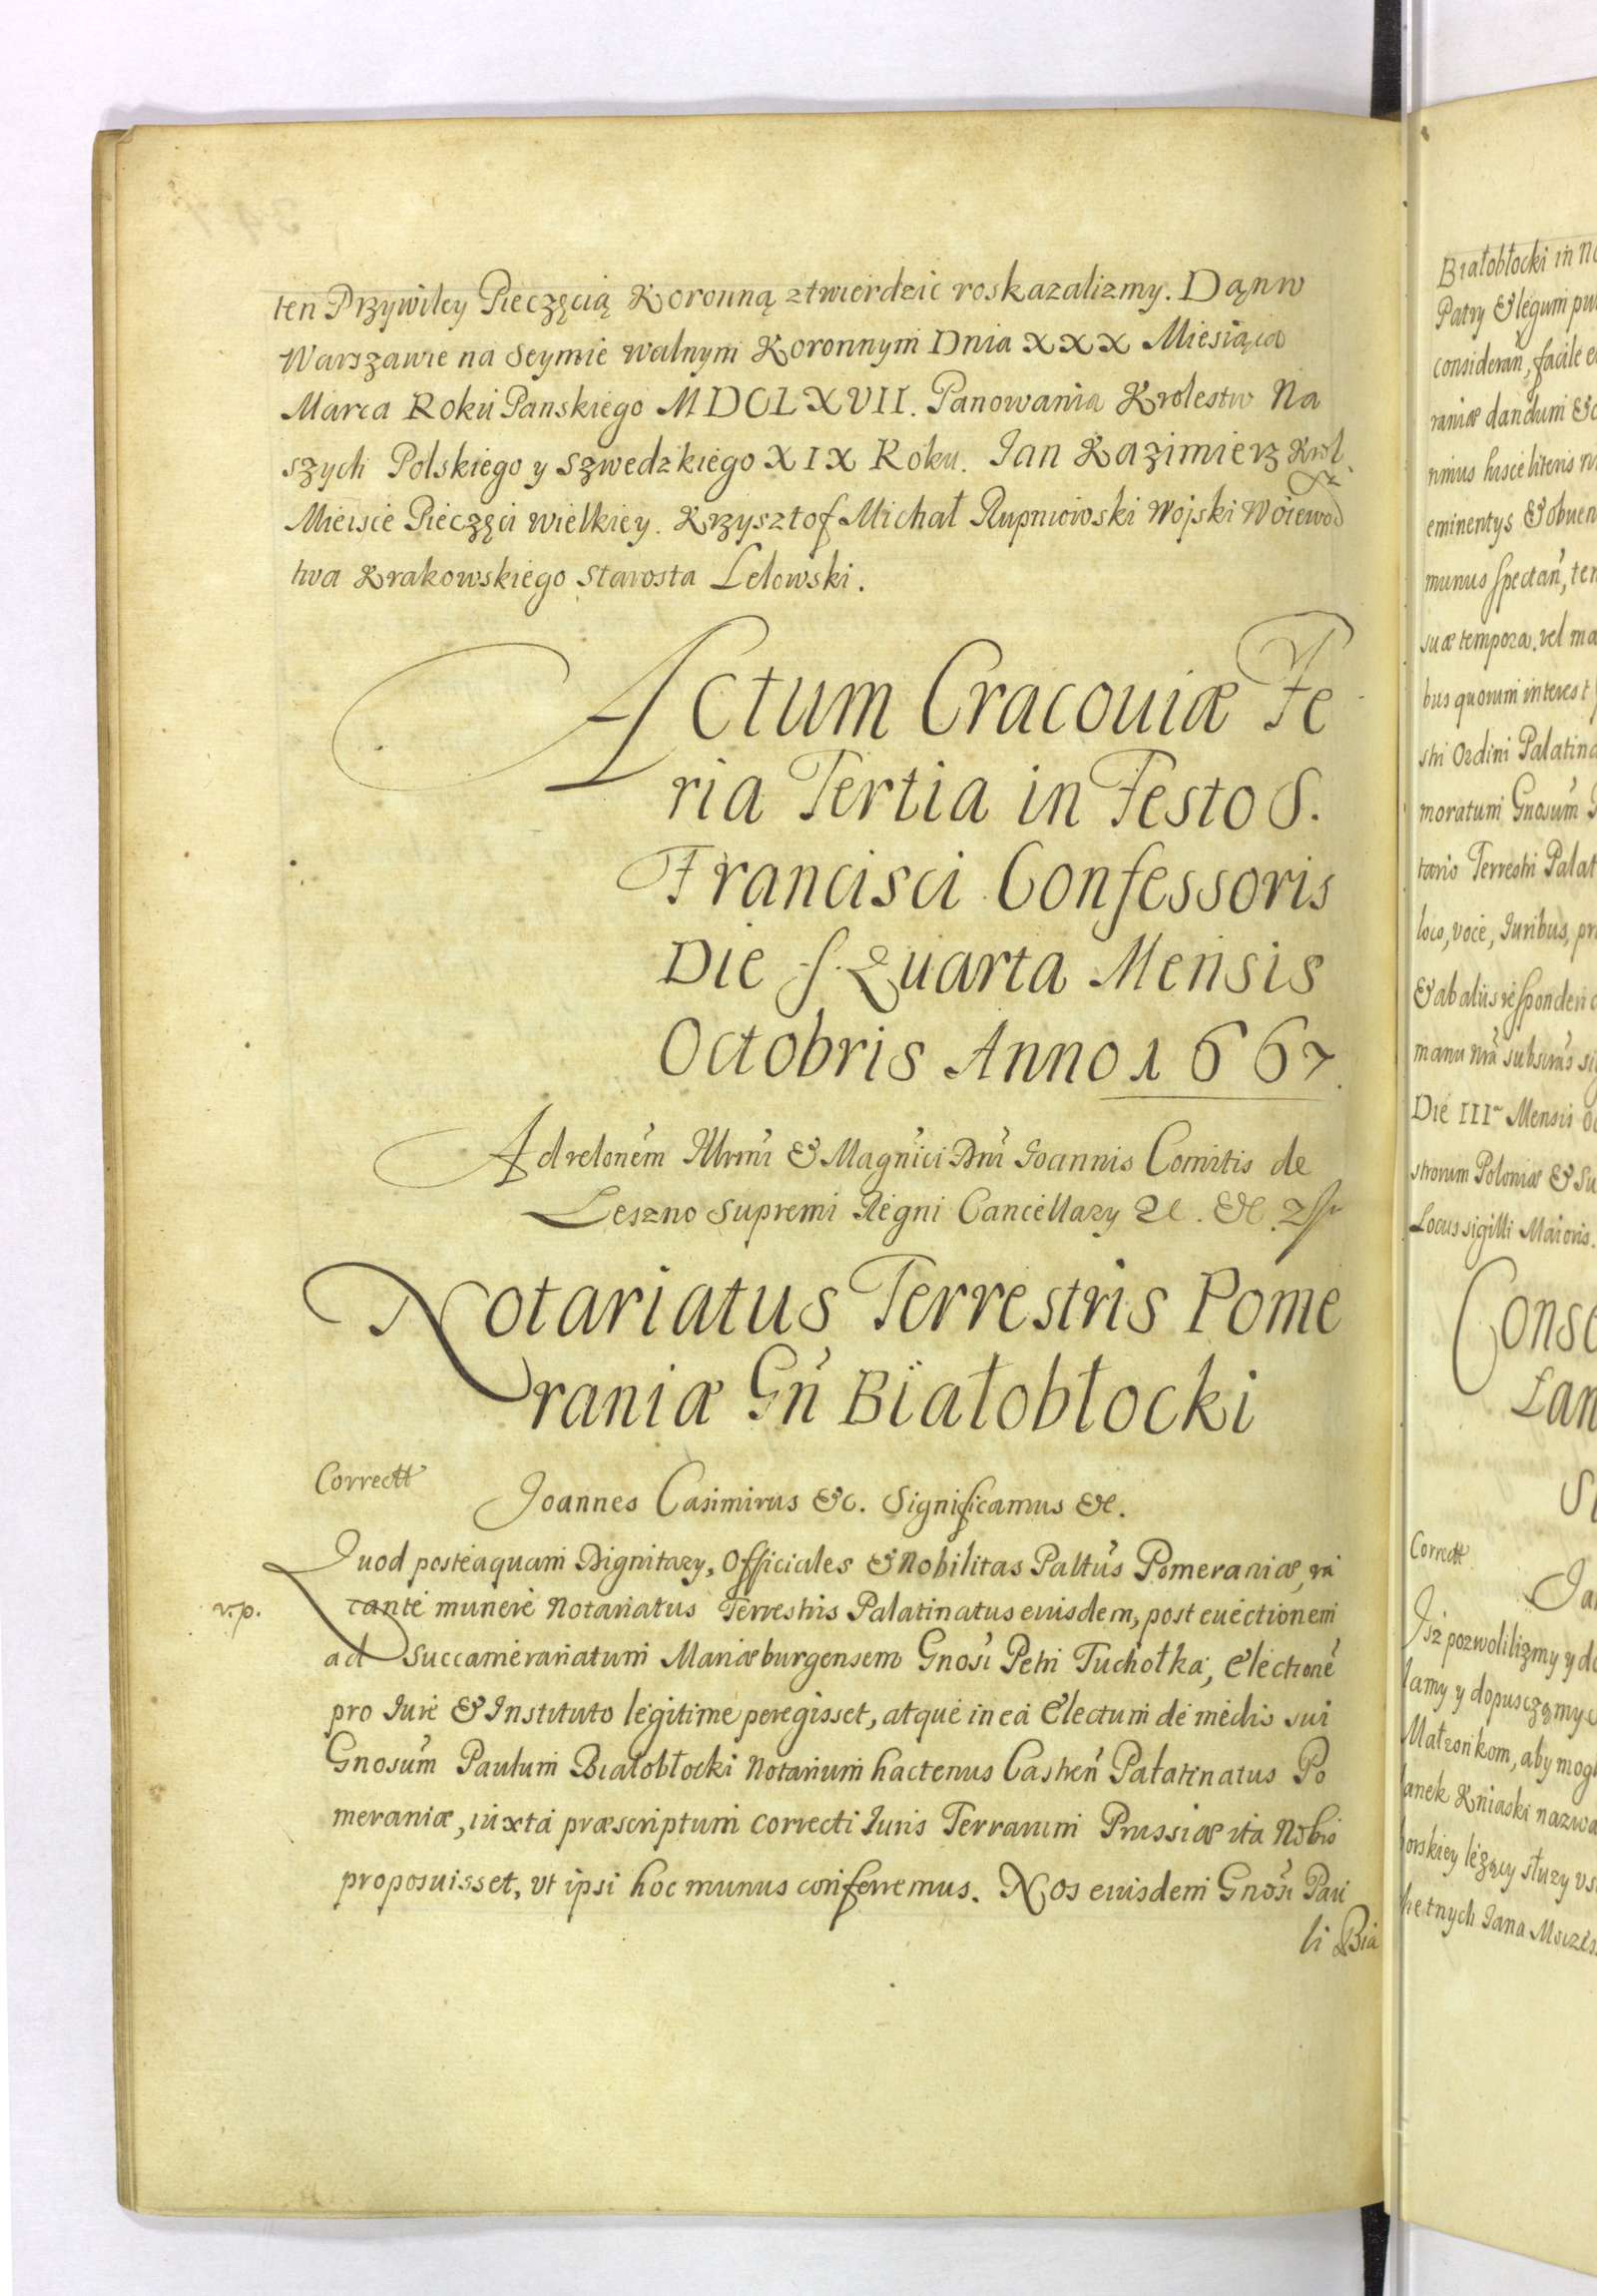 ten Przywiley Pieczęcią Koronną ztwierdzic roskazalizmy. Dąn w
Warszawie na Seymie walnym Koronnym Dnia XXX Miesiąca
Marca Roku Panskiego MDCLXVII. Panowania Krolestw Na
szych Polskiego y Szwedzkiego XIX Roku. Jan Kazimierz Krol.
Mieisce Pieczęci wielkiey. Krzysztof Michał Rupniowski Wojski Woiewodz
twa Krakowskiego Starosta Lelowski.
Actum Cracouiæ Fe
ria Tertia in Festo S.
Francisci Confessoris
Die Quarta Mensis
Octobris Anno 1667.
Ad relonem Illrmi & Magnici Dni Joannis Comitis de
Leszno Supremi Regni Cancellary &c. &c.
Notariatus Terrestris Pome
raniæ Gn Białobłocki
Correctt
Joannes Casimirus &c. Significamus &c.
Quod posteaquam Dignitary, Officiales & Nobilitas Paltus Pomeraniæ, va
v.p.
cante munere Notariatus Terrestris Palatinatus euisdem, post euectionem
ad Succamerariatum Mariæburgensem Gnosi Petri Tuchołka, Electione
pro Jure & Instituto legitime peregisset, atque in ea Electum de medio sui
Gnosum Paulum Białobłocki Notarium hactenus Castren Pałatinatus Po
meraniæ, iuxta præscriptum correcti Juris Terrarum Prussiæ ita Nobis
proposuisset, vt ipsi hoc munus conferremus. Nos euisdem Gnosi Pau
li Bia
Białobłocki in
Patry & legum
consideran, facile
raniæ dandum
nimus hisce literis
eminentys &
munus spectan,
suæ tempora, vel
bus quorum interest
stri Ordini
moratum Gnosum
tario Terrestri
loco, voce, Juribus,
& ab aliis
manu nra
Die III Mensis
strorum Poloniæ &
Locus sigilli Maioris.
Correctt
Jsz pozwolilizmy y
lamy y
Małzonkom, aby
nazwa
słuzy
Jana